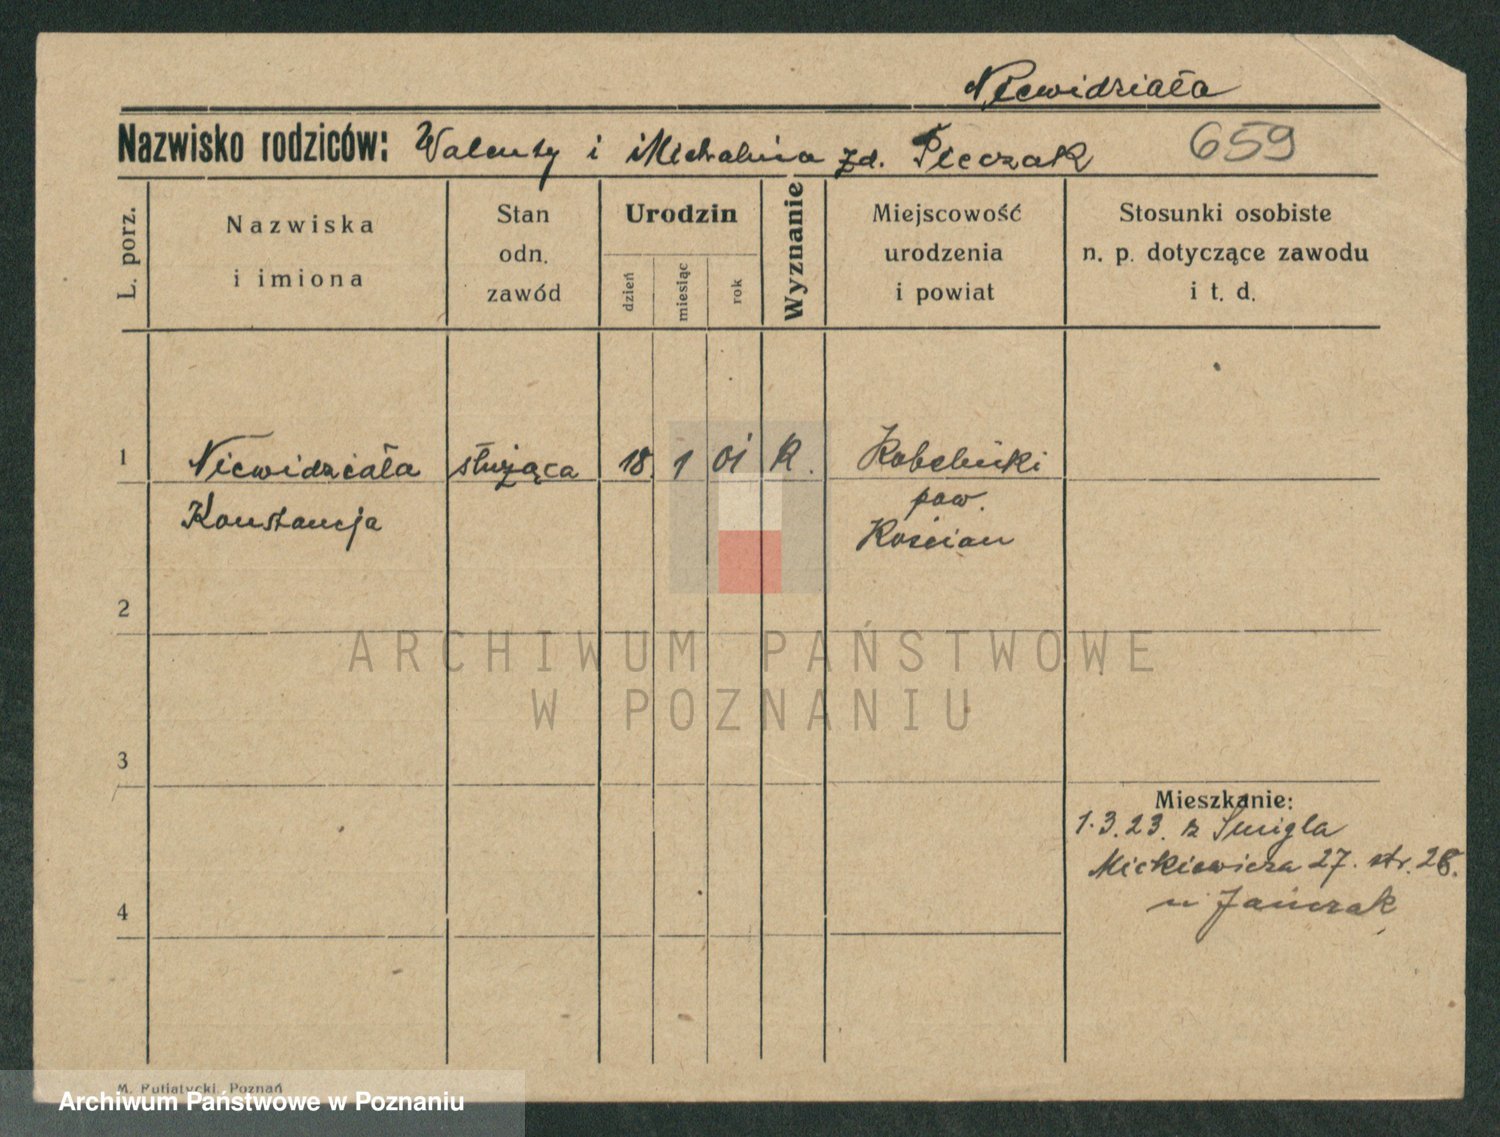 Niewidziała
Nazwisko rodziców: Walenty i Michalina zd. Pleczak 659
L. porz.
Nazwiska
i imiona
Stan
odn.
zawód
Urodzin
dzień
miesiąc
rok
Wyznanie
Miejscowość
urodzenia
i powiat
Stosunki osobiste
n. p. dotyczące zawodu
i t. d.
1 Niewidziała służąca 18. 1 01 K.
Konstancja
pow.
Kościan
2
3
4
Mieszkanie:
1.3.23. z Śmigla
Mickiewicza 27. str. 28.
u Jańczak
ARCHIWUM PAŃSTWOWE
W POZNANIU
M. Putiatycki, Poznań
Archiwum Państwowe w Poznaniu